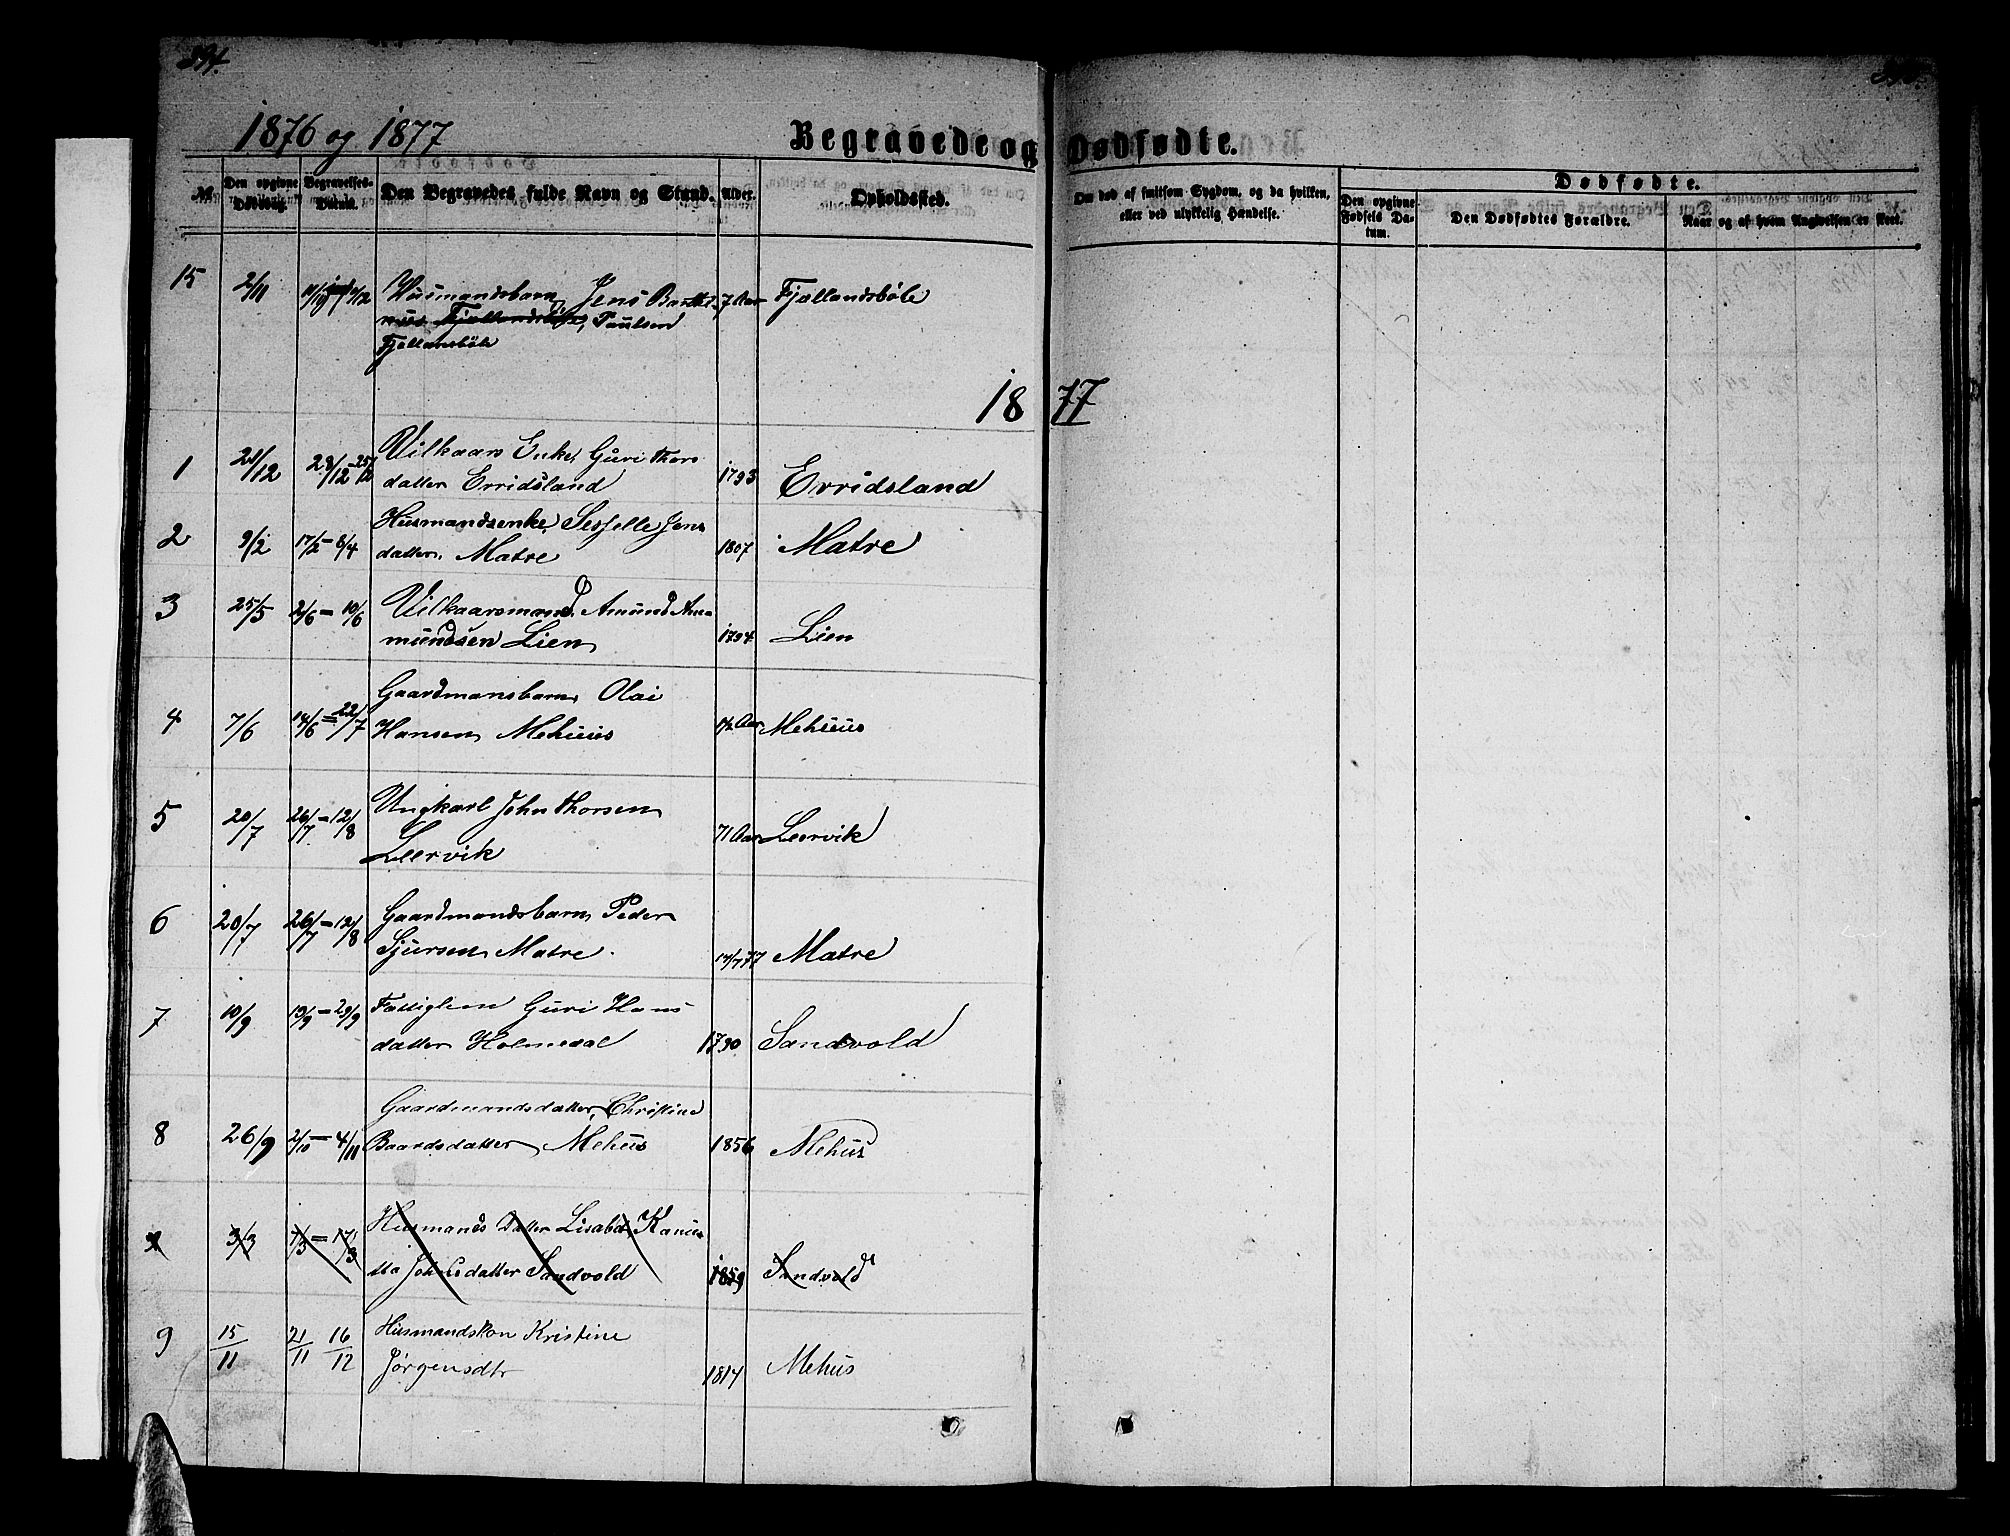 1876 og 1877
Begravede og Dødfødte.
№
Den opgivne Dødsdag.
Begravelses-Datum.
Den Begravedes fulde Navn og Stand.
Alder.
Opholdssted.
Om død af smitsom Sygdom, og da hvilken,
eller ved ulykkelig Hændelse.
Dødfødte.
Den opgivne Fødsels Datum.
Den Dødfødtes Forældre.
Naar og af hvem Angivelsen er skeet.
15 2/11 Husmandsbarn Jens Barthel- 7 Aar Fjellandsbøle
nus Paulsen
Fjellansbøle
1877
1 21/12 28/12 Vilkaars Enke, Guri Thors
datter Erridsland 1793 Erridsland
2 9/2 17/2 – 8/4 Husmandsenke, Sesselle Jens
datter, Matre 1807 Matre
3 25/5 2/6 – 10/6 Vilkaarsmand, Amund Am-
mundsen Lien 1794 Lien
4 7/6 14/6 = 22/7 Gaardmansbarn, Olai
Hansen, Mehuus 1/2 Aar Mehuus
5 20/7 26/7 – 12/8 Ungkarl John Thorsen
Leervik 71 Aar Leervik
6 20/7 26/7 – 12/8 Gaardmandsbarn, Peder
Sjursen, Matre. 17/7 77 Matre
7 10/9 19/9 – 29/9 Fattiglem Guri Hans
datter Holmedal 1790 Sandvold
8 26/9 2/10 – 4/11 Gaardmandsdatter, Christine
Baardsdatter, Mehus 1856 Mehus
3/3 = 17/3 Husmands Datter Lisabet
datter Sandvold 1859 Sandvold
9 15/11 21/11 16/12 Husmandskon Kristine
Jørgensdtr 1814 Mehus